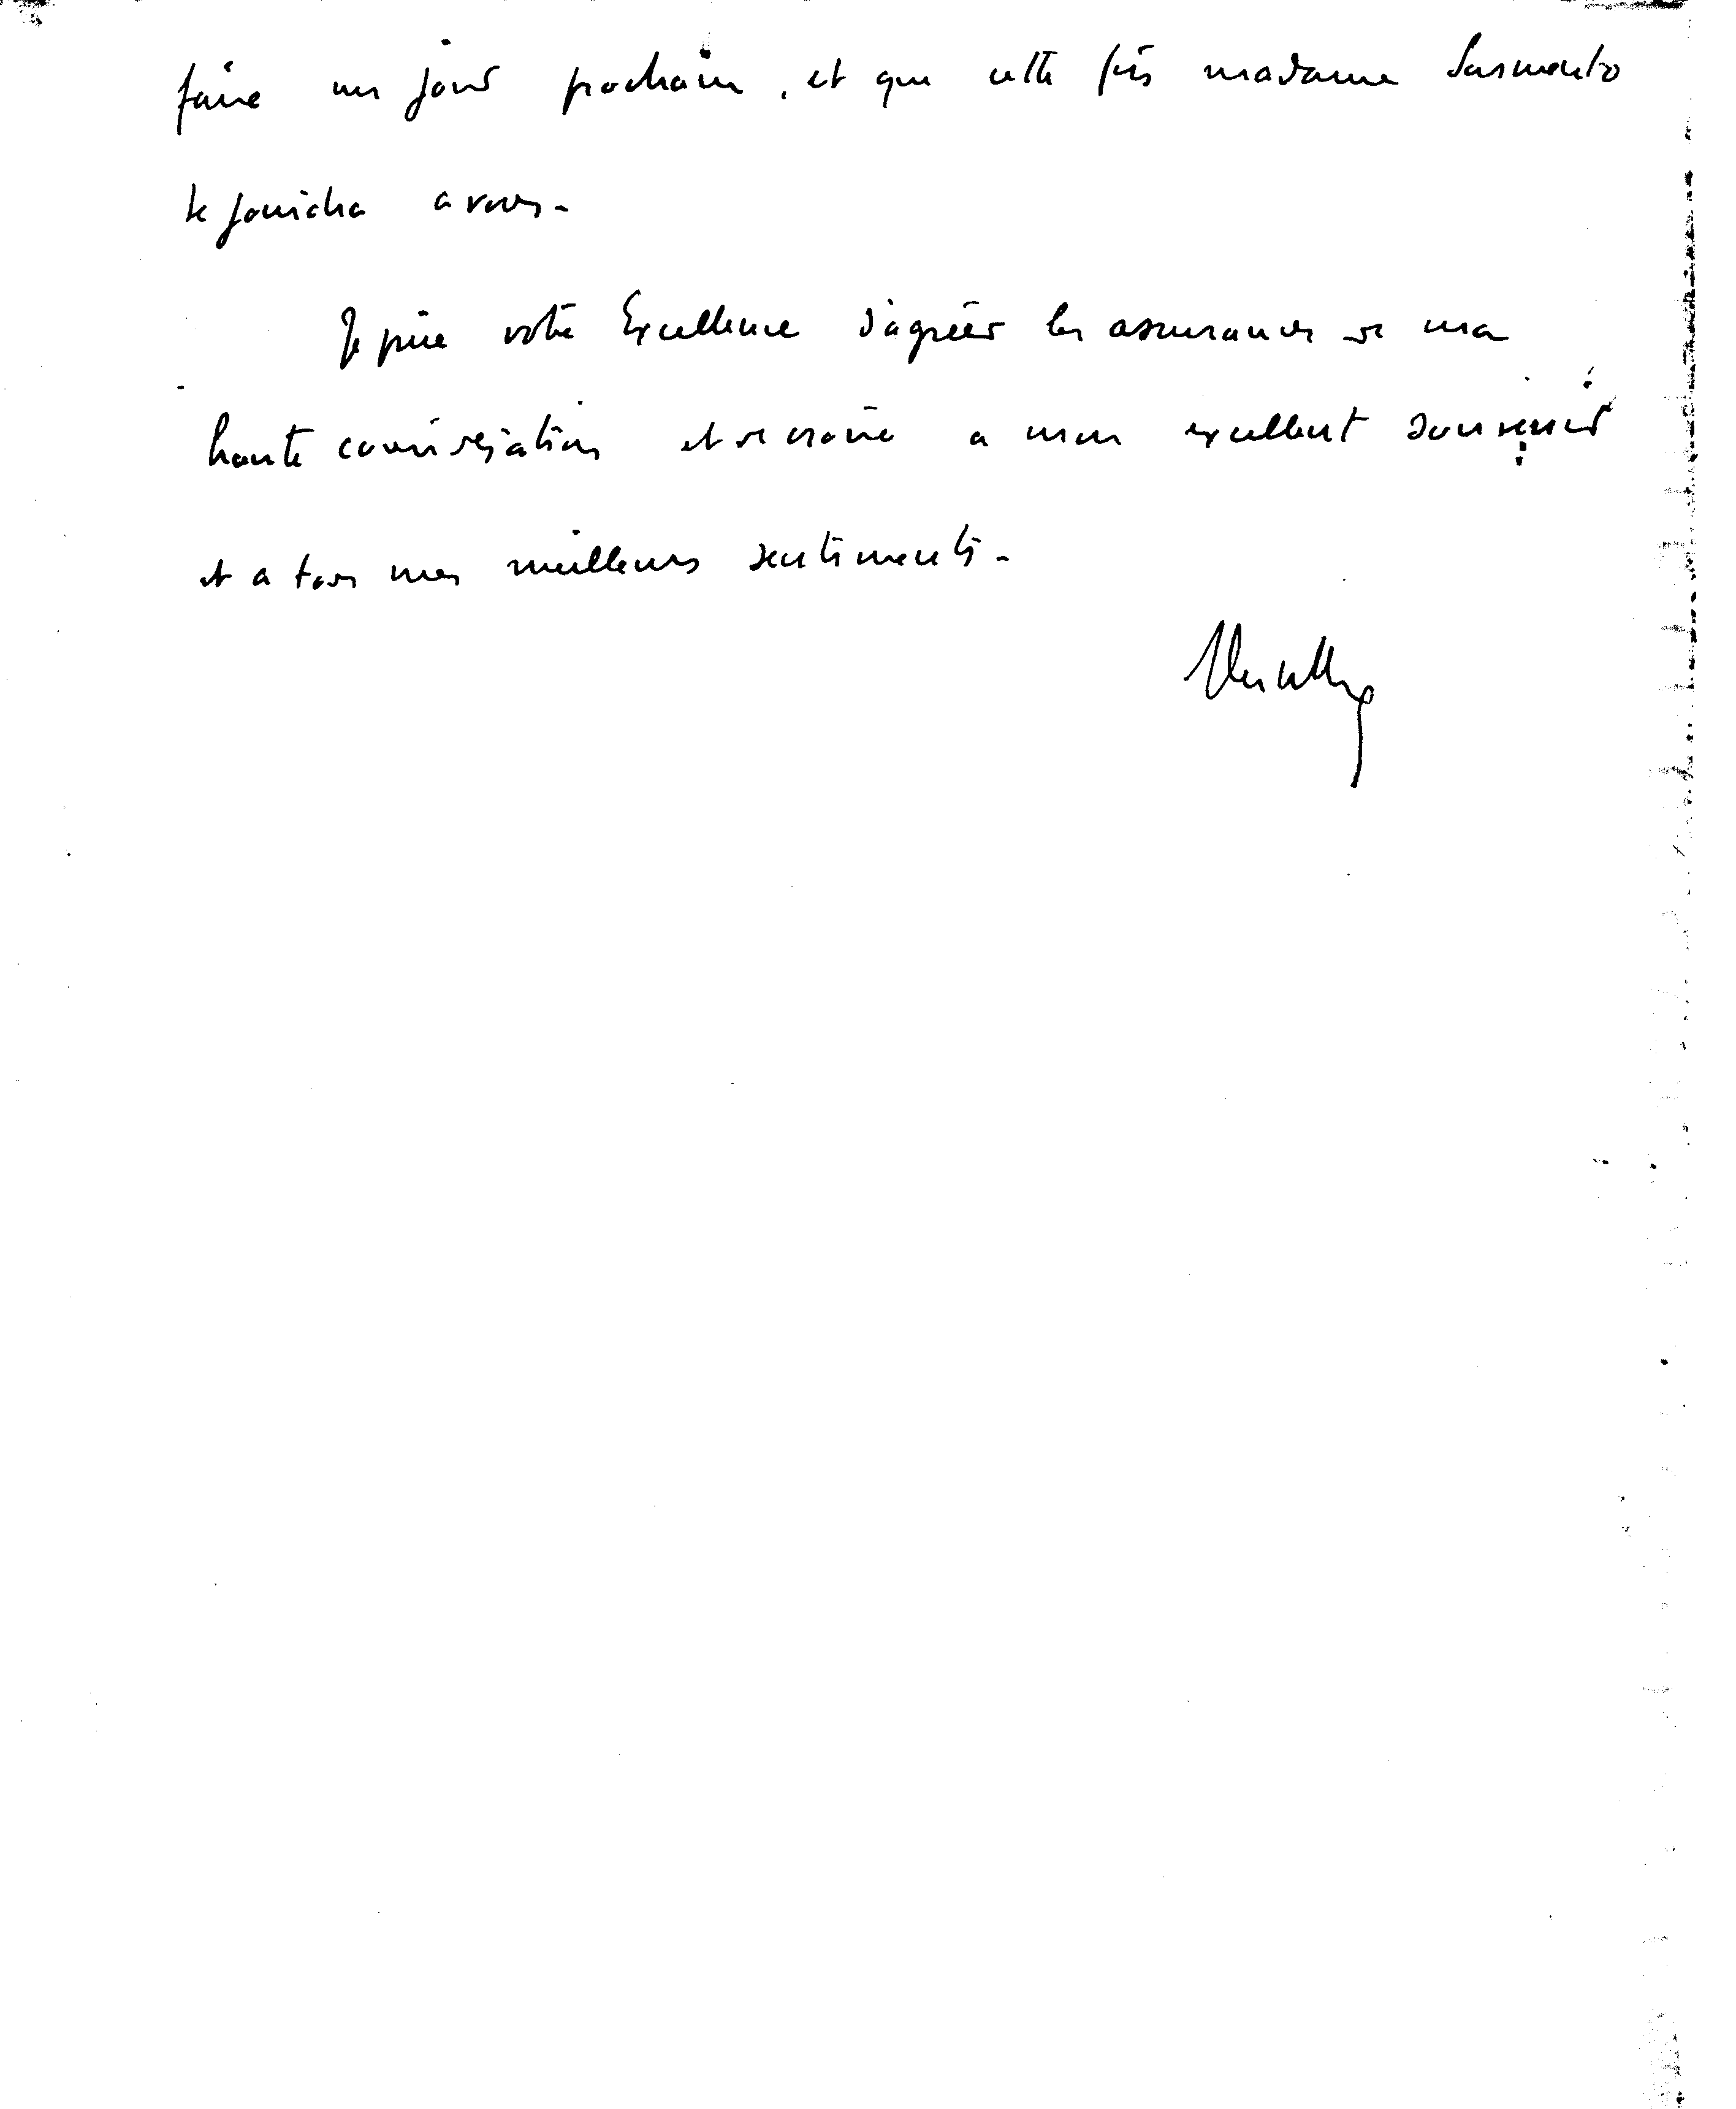 faire un jour prochain, et que cette fois madame Sarmento
se joindra a vous -
Je prie votre Excellence d'agréer les assurances de ma
haute considération et de croire a mon excellent souvenir
et a tous mes meilleurs sentiments -